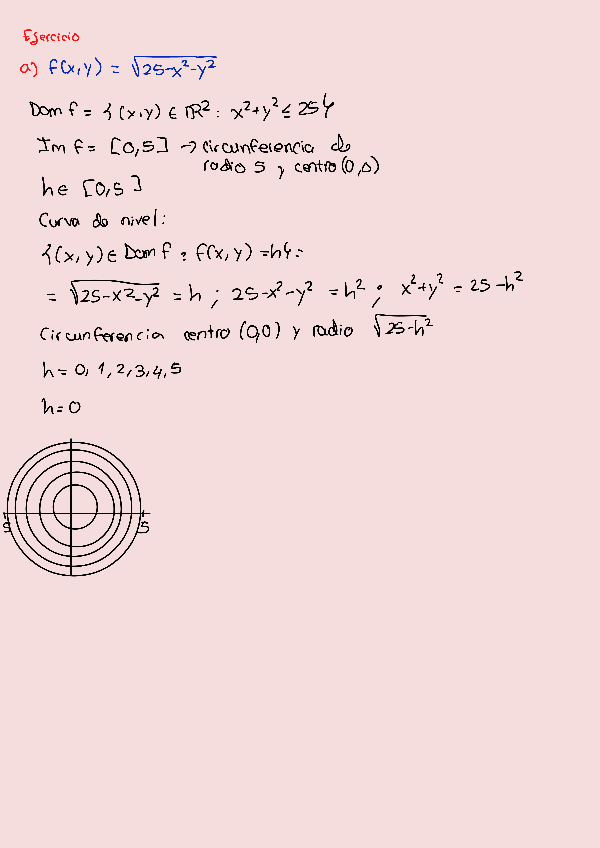 Ejercicio
a) f(x,y) = √25-x²-y²
Dom f = {(x,y) ∈ ℝ² : x²+y² ≤ 25}
Im f = [0,5] → circunferencia de
radio 5 y centro (0,0)
h ∈ [0,5]
Curva de nivel:
{(x,y) ∈ Dom f : f(x,y) = h} =
= √25-x²-y² = h ; 25-x²-y² = h² ; x²+y² = 25-h²
Circunferencia centro (0,0) y radio √25-h²
h = 0, 1, 2, 3, 4, 5
h = 0
5 5